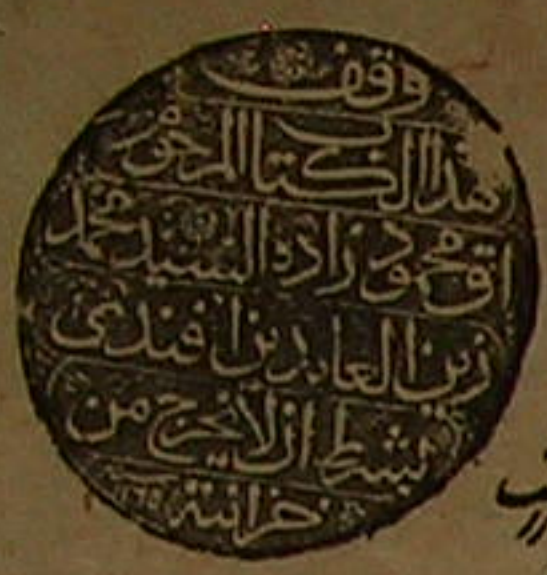 وقف
هذا الكتاب المرحوم
اق محمود زاده السيد محمد
زين العابدين افندى
بشرط ان لا يخرج من
خزانته